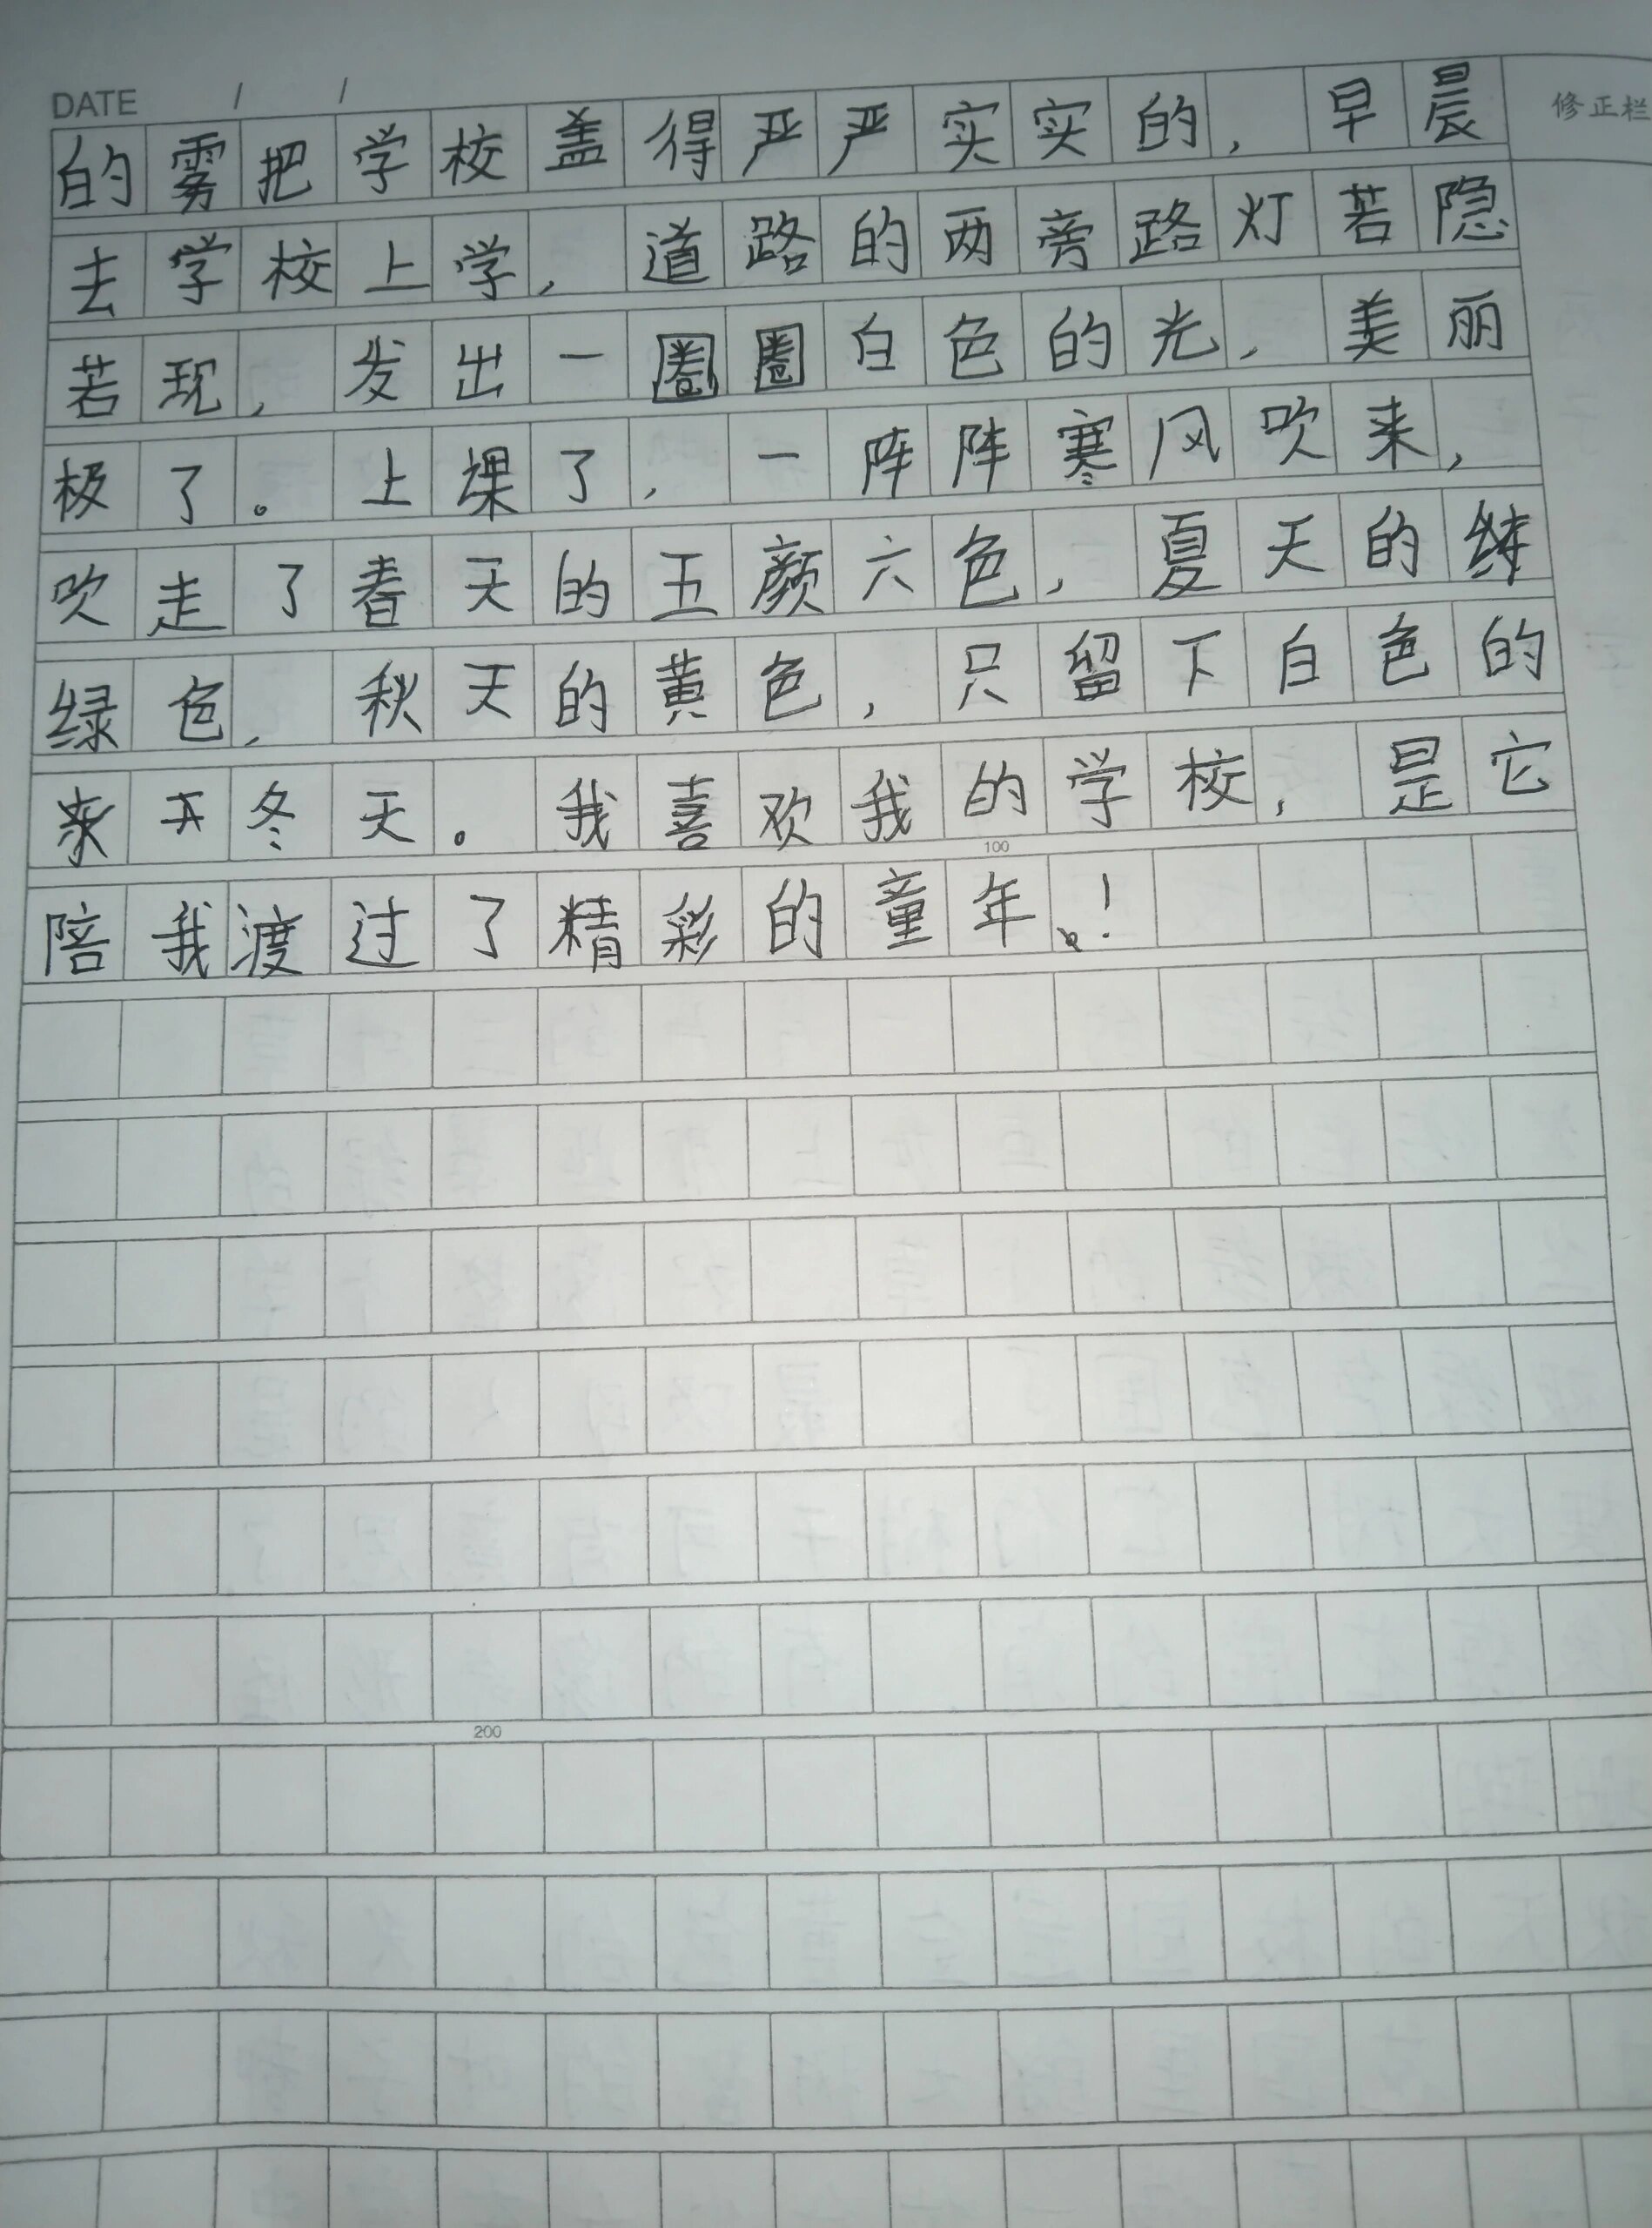 DATE / /
修正栏
的雾把学校盖得严严实实的，早晨
去学校上学，道路的两旁路灯若隐
若现，发出一圈圈白色的光，美丽
极了。上课了，一阵阵寒风吹来，
吹走了春天的五颜六色，夏天的
绿色，秋天的黄色，只留下白色的
冬天。我喜欢我的学校，是它
100
陪我渡过了精彩的童年！
200